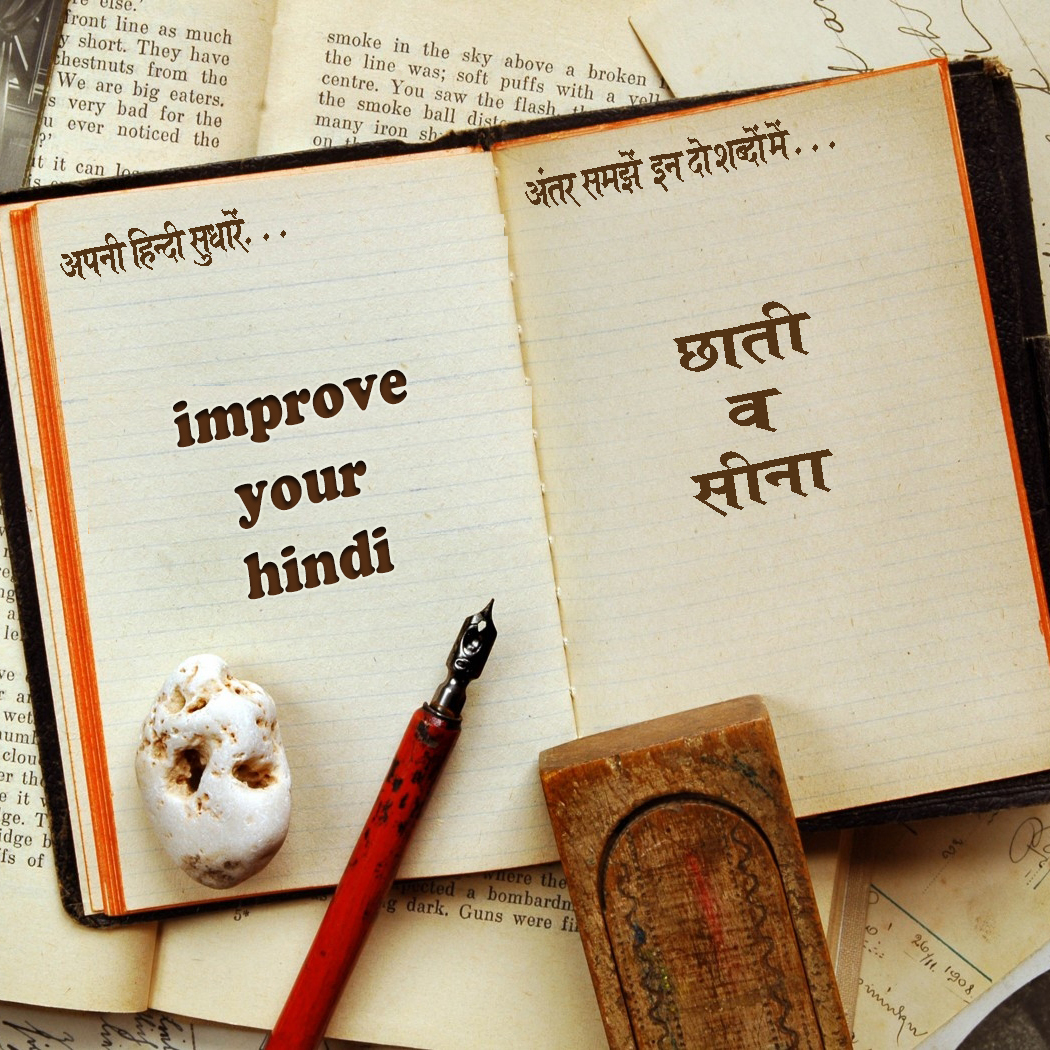 re else.'
front line as much
y short. They have
chestnuts from the
We are big eaters.
s very bad for the
u ever noticed the
?'
smoke in the sky above a broken
the line was; soft puffs with a yell
centre. You saw the flash, th
the smoke ball disto
many iron sh
on th
अपनी हिन्दी सुधारें. . .
improve
your
hindi
अंतर समझें इन दो शब्दों में . . .
छाती
व
सीना
where the
pected a bombardm
g dark. Guns were fi
5*
26/11. 1908.